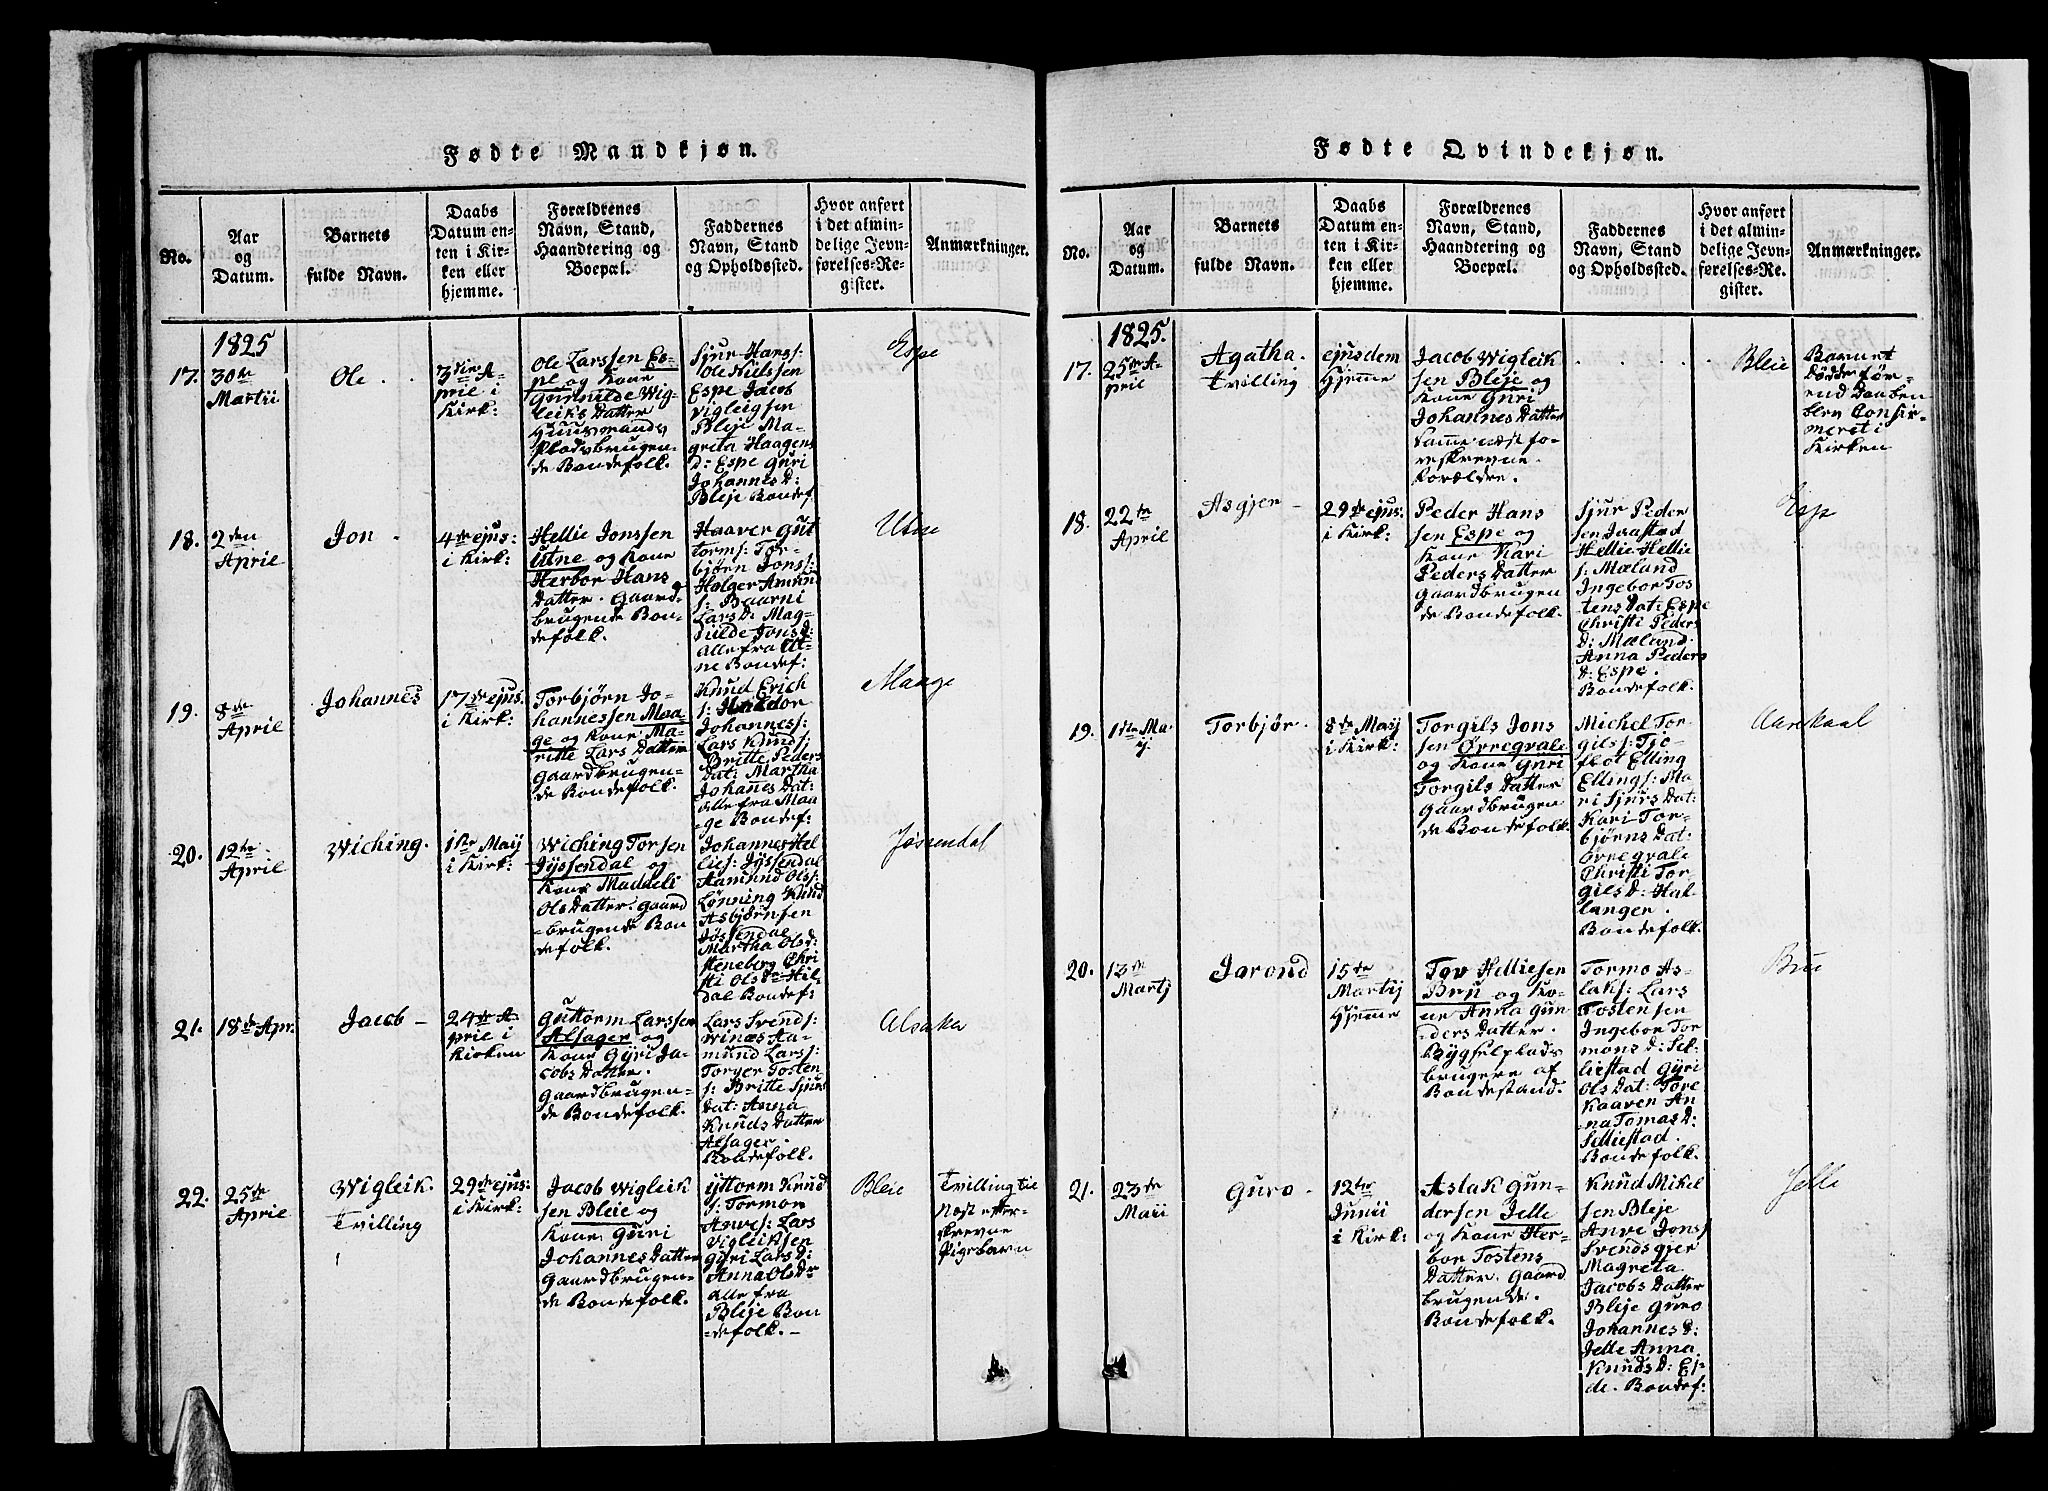 Fødte Mandkjøn.
No.
Aar
og
Datum.
Barnets
fulde Navn.
Daabs
Datum en-
ten i Kir-
ken eller
hjemme.
Forældrenes
Navn, Stand,
Haandtering og
Boepæl.
Faddernes
Navn, Stand
og Opholdssted.
Hvor anført
i det almin-
delige Jevn-
førelses-Re-
gister.
Anmærkninger.
1825
17.
30te
Martii
Ole
3die A-
pril i
Kirk:
Ole Larssen Es-
pe og Kone
Gunnilde Wig-
leiks Datter
Huusmands
Pladsbrugen-
de Bondefolk.
Sjur Hans s:
Ole Nielssen
Espe Jacob
Vigleigsen
Bleje Ma-
greta Haagens
D: Espe Guri
Johannes D:
Bleje Bondef.
Espe
18.
2den
April
Jon
4de ejus:
i Kirk:
Hellie Jonssen
Utne og Kone
Herbor Hans
Datter. Gaard-
brugende Bon-
defolk.
Haaver Gut
torms: Tor-
bjørn Jons s:
Holger Amun
s: Baarni
Lars D: Mag-
nilde Jons D:
alle fra Ut-
ne Bondef:
Utne
19.
8de
April
Johannes
17de ejus:
i Kirk:
Torbjørn Jo-
hannessen Maa-
ge og Kone Ma-
ritte Lars Datter
Gaardbrugen-
de Bondefolk.
Knud Erich
s: Haldor
Johannes s:
Lars Knud s:
Britte Peders
Dat: Martha
Johanes Dat:
alle fra Maa-
ge Bondef:
Maage
20.
12te
April
Wiching.
1ste Maij
i Kirk:
Wiching Torsen
Jyssendal og
Kone Maddeli
Ols Datter. Gaard
-brugende Bon
defolk.
Johannes Hel-
lies: Jyssendal
Aamund Ols s:
Lønning Knud
Asbjørnsen
Jøssendal
Martha Ols D:
Steneberg Chri
sti Ols Dr Hil-
dal Bondef:
Jøssendal
21.
18de Apr.
Jacob
24de A-
pril i
Kirken
Guttorm Larssen
Alsager og
Kone Gyri Ja-
cobs Datter.
Gaardbrugen-
de Bondefolk.
Lars Svends:
Winæs Aa-
mund Lars s:
Torger Tosten
s: Britte Sjurs
Dat: Anna
Knuds Datter
Alsager.
Bondefolk.
Alsaker
22.
25de
April
Wigleik.
Tvilling
29de ejus:
i Kirk:
Jacob Wigleik
sen Bleie og
Kone Guri
Johannes Datter
Gaardbrugen-
de Bondefolk.
Yttorm Knud
s: Tormon
Anves: Lars
Vigleiksen
Gyri Lars D:
Anna Ols Dr
alle fra
Bleje Bon
-defolk.
Bleie
Tvilling til
Næst efter-
skrevne
Pigebarn
Fødte Qvindekjøn.
No.
Aar
og
Datum.
Barnets
fulde Navn.
Daabs
Datum en-
ten i Kir-
ken eller
hjemme.
Forældrenes
Navn, Stand,
Haandtering og
Boepæl.
Faddernes
Navn, Stand
og Opholdssted.
Hvor anført
i det almin-
delige Jevn-
førelses-Re-
gister.
Anmærkninger.
1825.
17.
25de A-
pril
Agatha.
Tvilling
ejusdem
Hjemme
Jacob Wigleik
sen Bleje og
Kone Guri
Johannes Datter
samme næst fo-
reskrevne
Forældre.
Bleie
Barnet
døde før-
end Daaben
blev Confir-
meret i
Kirken
18.
22de
April
Asgjer
29de ejus:
i Kirk:
Peder Hans
sen Espe og
Kone Kari
Peders Datter
Gaardbrugen
de Bondefolk.
Sjur Peder
sen Jaastad
Hellie Hellie
s: Mæland
Ingebor Tos
tens Dat: Espe
Christi Peders
D: Mæland
Anna Peders
D: Espe.
Bondefolk.
Espe
19.
1ste Ma-
j.
Torbjør.
8de Maij
i Kirk:
Torgils Jons
sen Ørregvale
og Kone Gyri
Torgils Datter
Gaardbrugen
de Bondefolk.
Michel Tor-
gils s: Tjo-
flot Elling
Ellings: Ma-
ri Sjurs Dat:
Kari Tor-
bjørns Dat:
Ørregvale
Christi Tor-
gils D: Hal
langer.
Bondefolk.
Aarekaal
20.
13de
Martj
Jorond
15de
Martij
Hjemme
Tov Helliesen
Bru og Ko-
ne Anna Gun
ders Datter.
Bygselplads
brugere af
Bondestand.
Tormo As-
laks: Lars
Tostensen
Ingebor Tor
mons D: Sel-
liestad Gyri
Ols Dat: Tore
Kaaven An
na Tomas D:
Selliestad.
Bondefolk.
Bru
21.
23de
Maii
Guro
12te
Junii
i Kirk:
Aslak Gun-
dersen Jelle
og Kone Her-
bor Tostens
Datter. Gaard
brugende.
Bondefolk.
Knud Mikel
sen Bleje
Anve Jons s
Svendsgjer
Magreta
Jacobs Datter
Bleje Guro
Johannes D:
Jelle Anna
Knuds D: Ej-
de. Bondef:
Jelle